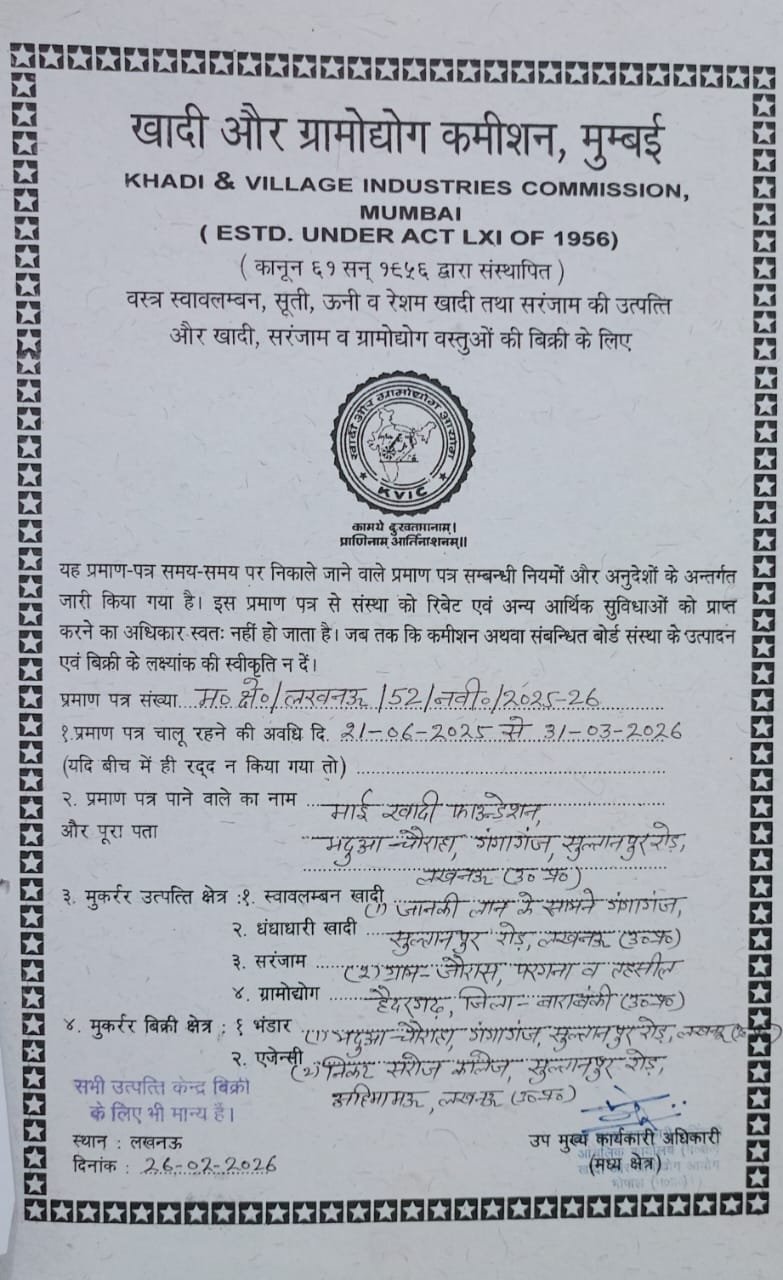 खादी और ग्रामोद्योग कमीशन, मुम्बई
KHADI & VILLAGE INDUSTRIES COMMISSION,
MUMBAI
( ESTD. UNDER ACT LXI OF 1956)
( कानून ६१ सन् १९५६ द्वारा संस्थापित )
वस्त्र स्वावलम्बन, सूती, ऊनी व रेशम खादी तथा सरंजाम की उत्पत्ति
और खादी, सरंजाम व ग्रामोद्योग वस्तुओं की बिक्री के लिए
खादी और ग्रामोद्योग आयोग
KVIC
कामये दुःखतप्तानाम्।
प्राणिनाम् आर्तिनाशनम्॥
यह प्रमाण-पत्र समय-समय पर निकाले जाने वाले प्रमाण पत्र सम्बन्धी नियमों और अनुदेशों के अन्तर्गत
जारी किया गया है। इस प्रमाण पत्र से संस्था को रिबेट एवं अन्य आर्थिक सुविधाओं को प्राप्त
करने का अधिकार स्वतः नहीं हो जाता है। जब तक कि कमीशन अथवा संबन्धित बोर्ड संस्था के उत्पादन
एवं बिक्री के लक्ष्यांक की स्वीकृति न दें।
प्रमाण पत्र संख्या म०क्षे०/लखनऊ/52/नवी०/2025-26
१.प्रमाण पत्र चालू रहने की अवधि दि. 21-06-2025 से 31-03-2026
(यदि बीच में ही रद्द न किया गया तो)
२. प्रमाण पत्र पाने वाले का नाम माई खादी फाउन्डेशन,
और पूरा पता मदुआ-चौराहा, गंगागंज, सुल्तानपुर रोड़,
लखनऊ (उ०प्र०)
३. मुकर्रर उत्पत्ति क्षेत्र :१. स्वावलम्बन खादी (1) जानकी लान के सामने गंगागंज,
२. धंधाधारी खादी सुल्तानपुर रोड़, लखनऊ (उ०प्र०)
३. सरंजाम (२) ग्राम- जौरास, परगना व तहसील
४. ग्रामोद्योग हैदरगढ़, जिला- बाराबंकी (उ०प्र०)
४. मुकर्रर बिक्री क्षेत्र : १ भंडार (1) मदुआ-चौराहा, गंगागंज, सुल्तानपुर रोड़, लखनऊ (उ०प्र०)
२. एजेन्सी (२) निकट सरोज कालेज, सुल्तानपुर रोड़,
अहिमामऊ, लखनऊ (उ०प्र०)
सभी उत्पत्ति केन्द्र बिक्री
के लिए भी मान्य हैं।
स्थान : लखनऊ
दिनांक : 26-02-2026
उप मुख्य कार्यकारी अधिकारी
(मध्य क्षेत्र)